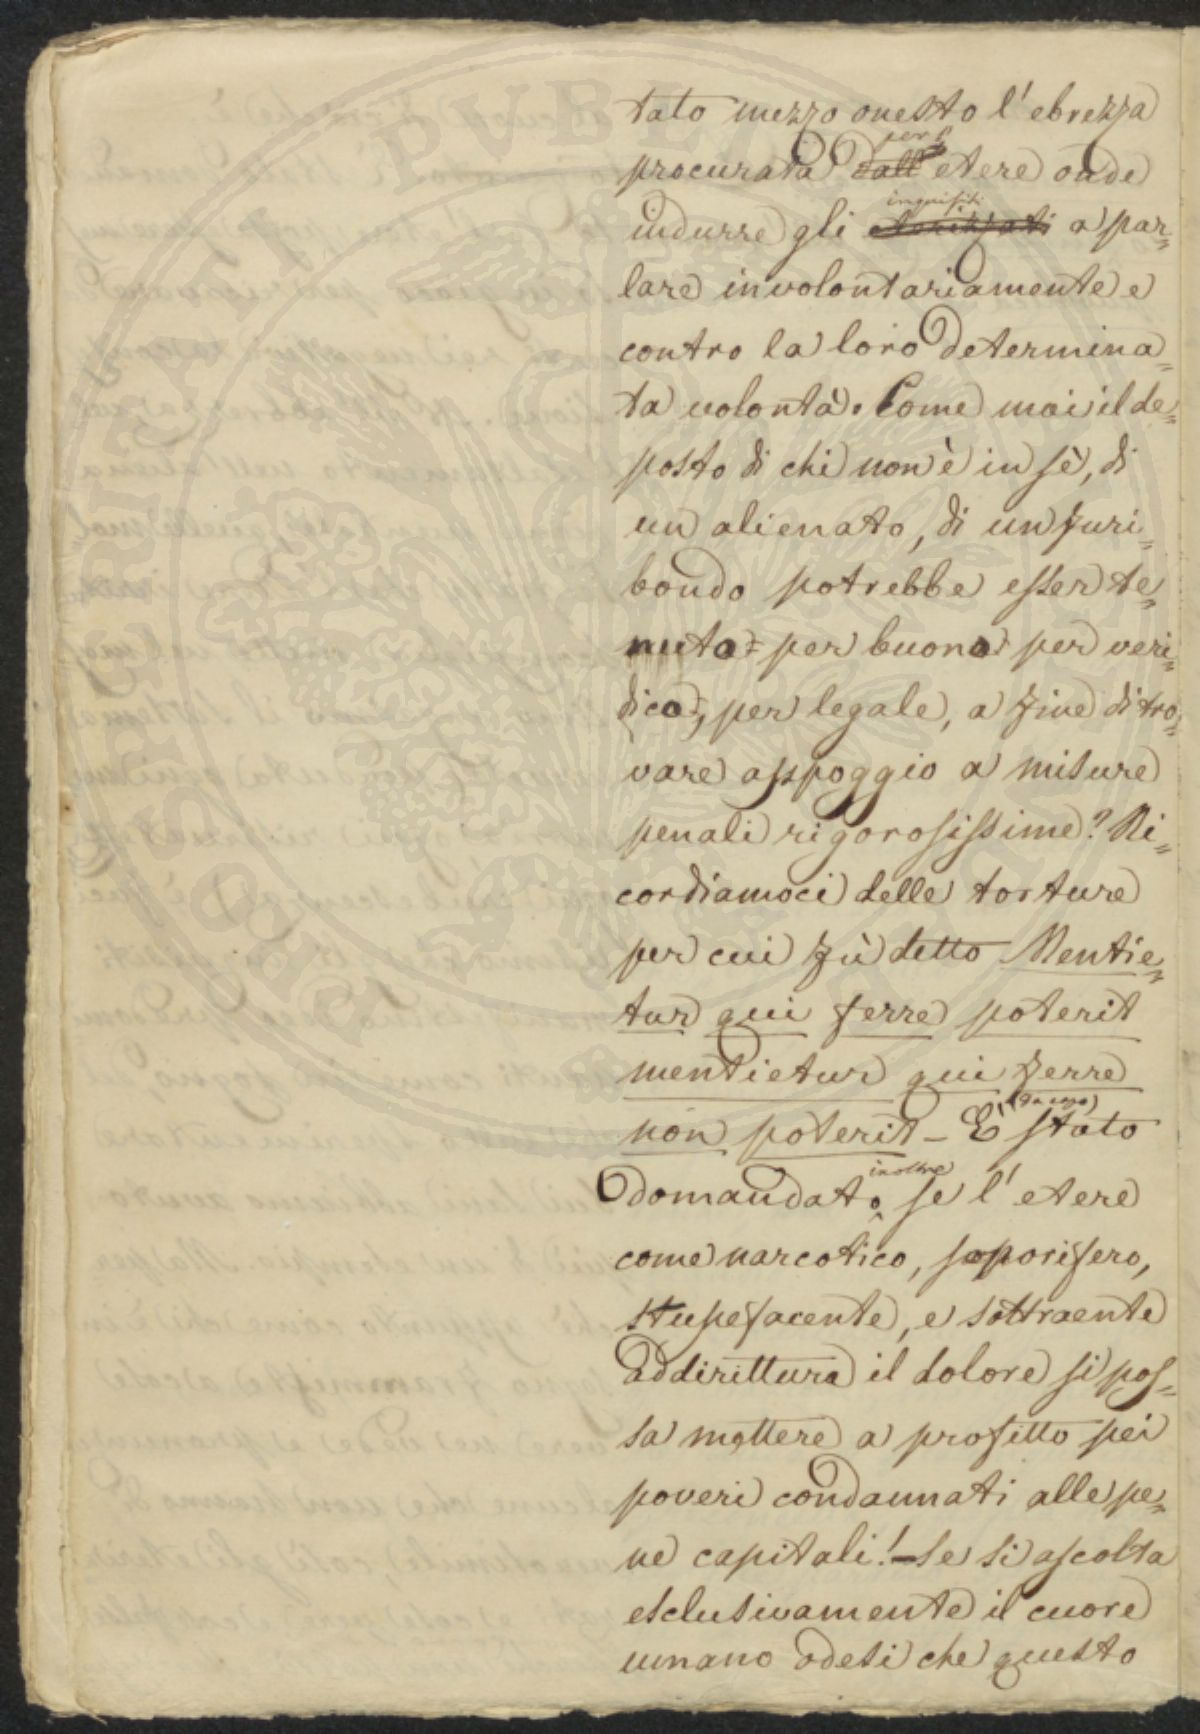 tato mezzo onesto l'ebrezza
per l'
procurata dall' etere onde
inquisiti
indurre gli eterizzati a par=
lare involontariamente e
contro la loro determina=
ta volontà. Come mai il de=
posto di chi non è in sè, di
un alienato, di un furi=
bondo potrebbe esser te=
nuto per buono per veri=
dico, per legale, a fine di tro=
vare appoggio a misure
penali rigorosissime? Ri=
cordiamoci delle torture
per cui fù detto Mentie=
tur qui ferre poterit
mentietur qui ferre
non poterit – È stato
domandato inoltre se l'etere
come narcotico, soporifero,
stupefacente, e sottraente
addirittura il dolore si pos=
sa mettere a profitto pei
poveri condannati alle pe=
ne capitali! – Se si ascolta
esclusivamente il cuore
umano odesi che questo